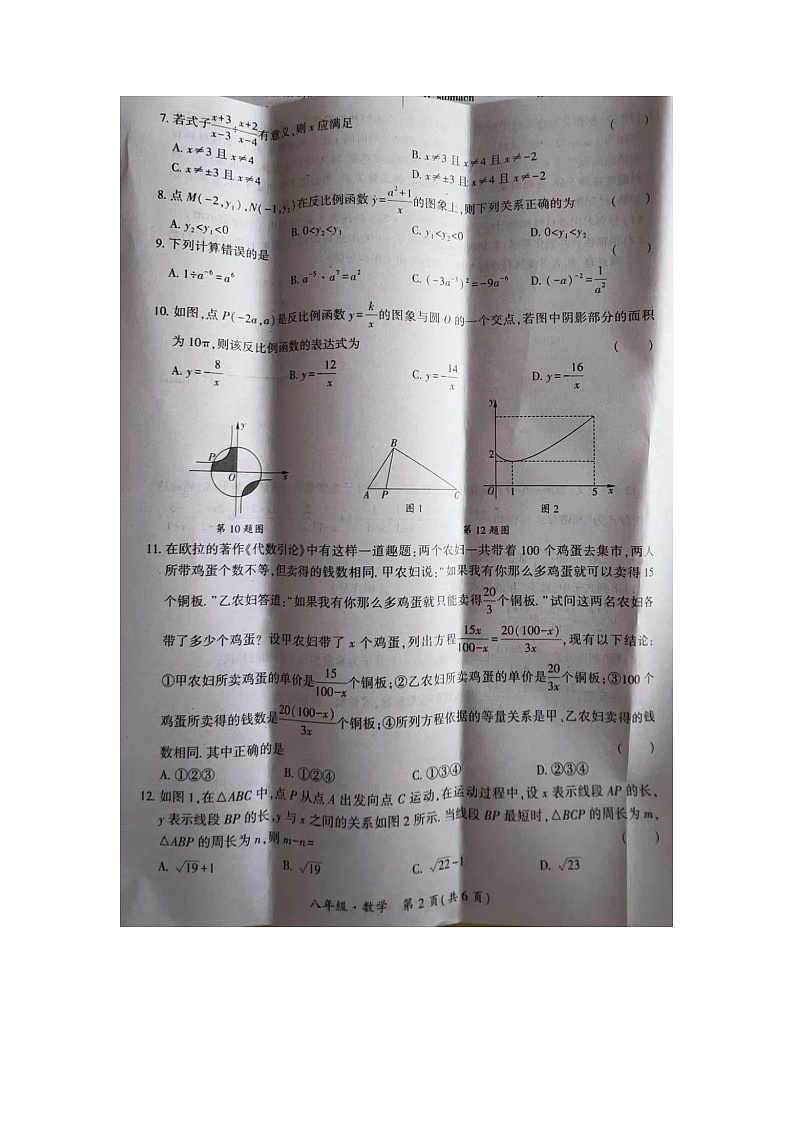 stomach
7. 若式子\frac{x+3}{x-3}÷\frac{x+2}{x-4}有意义,则 x 应满足 ( )
A. x≠3 且 x≠4 B. x≠3 且 x≠4 且 x≠-2
C. x≠±3 且 x≠4 D. x≠±3 且 x≠4 且 x≠-2
8. 点 M(-2,y₁),N(-1,y₂)在反比例函数 y=\frac{a²+1}{x}的图象上,则下列关系正确的为 ( )
A. y₂<y₁<0 B. 0<y₂<y₁ C. y₁<y₂<0 D. 0<y₁<y₂
9. 下列计算错误的是 ( )
A. 1÷a⁻⁶=a⁶ B. a⁻⁵·a⁷=a² C. (-3a⁻³)²=-9a⁻⁶ D. (-a)⁻²=\frac{1}{a²}
10. 如图,点 P(-2a,a)是反比例函数 y=\frac{k}{x}的图象与圆 O 的一个交点,若图中阴影部分的面积
为 10π,则该反比例函数的表达式为 ( )
A. y=-\frac{8}{x} B. y=-\frac{12}{x} C. y=-\frac{14}{x} D. y=-\frac{16}{x}
y
P
O
x
第 10 题图
B
A P C
图 1
y
2
O 1 5 x
图 2
第 12 题图
11. 在欧拉的著作《代数引论》中有这样一道趣题:两个农妇一共带着 100 个鸡蛋去集市,两人
所带鸡蛋个数不等,但卖得的钱数相同. 甲农妇说:“如果我有你那么多鸡蛋就可以卖得 15
个铜板.”乙农妇答道:“如果我有你那么多鸡蛋就只能卖得\frac{20}{3}个铜板.”试问这两名农妇各
带了多少个鸡蛋? 设甲农妇带了 x 个鸡蛋,列出方程\frac{15x}{100-x}=\frac{20(100-x)}{3x},现有以下结论:
①甲农妇所卖鸡蛋的单价是\frac{15}{100-x}个铜板;②乙农妇所卖鸡蛋的单价是\frac{20}{3x}个铜板;③100 个
鸡蛋所卖得的钱数是\frac{20(100-x)}{3x}个铜板;④所列方程依据的等量关系是甲、乙农妇卖得的钱
数相同. 其中正确的是 ( )
A. ①②③ B. ①②④ C. ①③④ D. ②③④
12. 如图 1,在△ABC 中,点 P 从点 A 出发向点 C 运动,在运动过程中,设 x 表示线段 AP 的长,
y 表示线段 BP 的长,y 与 x 之间的关系如图 2 所示. 当线段 BP 最短时,△BCP 的周长为 m,
△ABP 的周长为 n,则 m-n= ( )
A. √19+1 B. √19 C. √22-1 D. √23
八年级·数学 第 2 页(共 6 页)